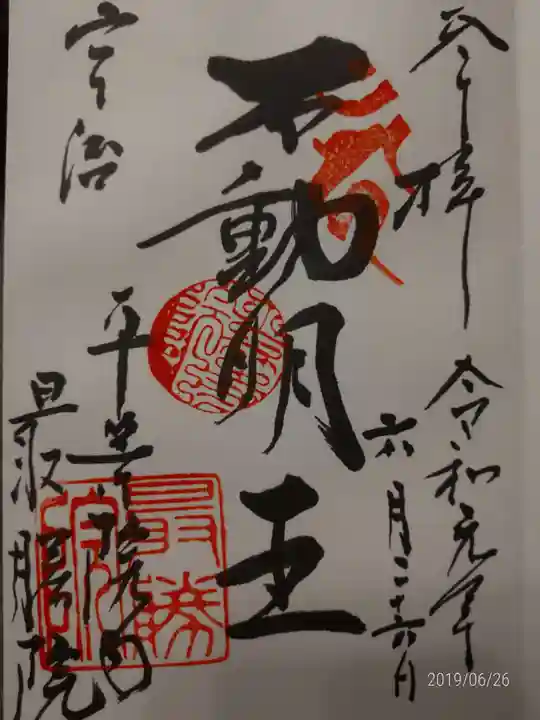 参拝
令和元年
六月二十六日
不動明王
宇治
平等院内
最勝院
最勝院
2019/06/26